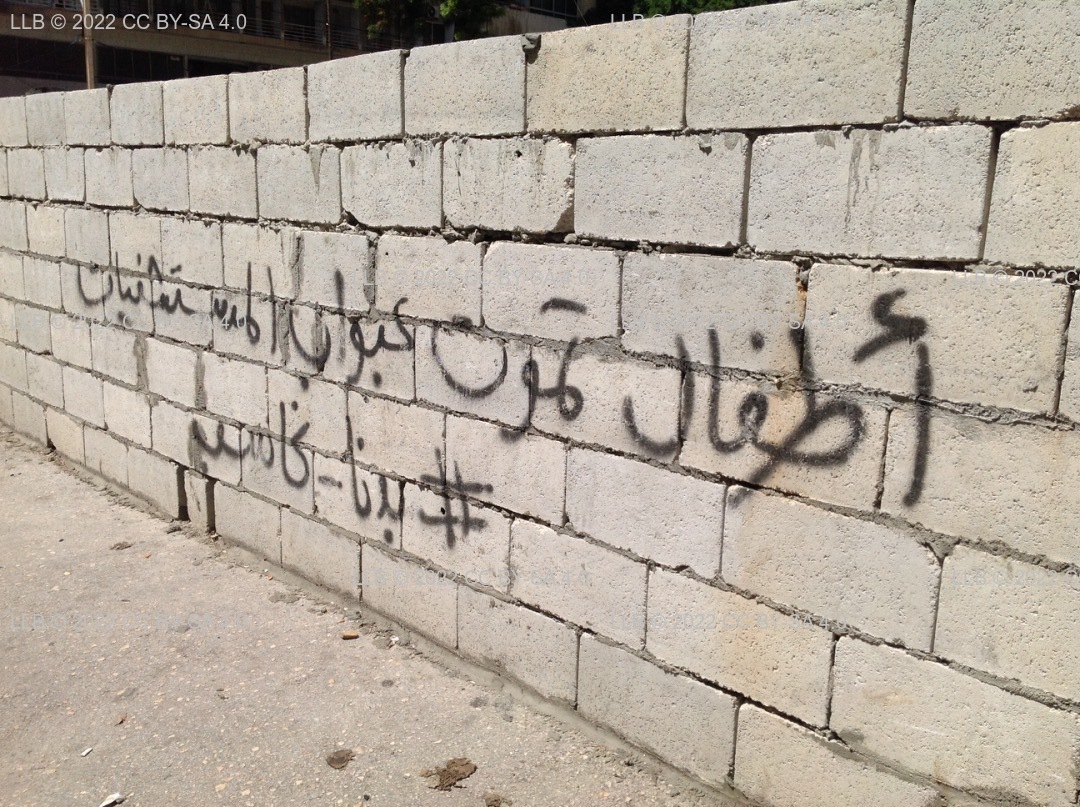 LLB © 2022 CC BY-SA 4.0
أطفال تموت عبواب المستشفيات
#بدنا_نحاسب